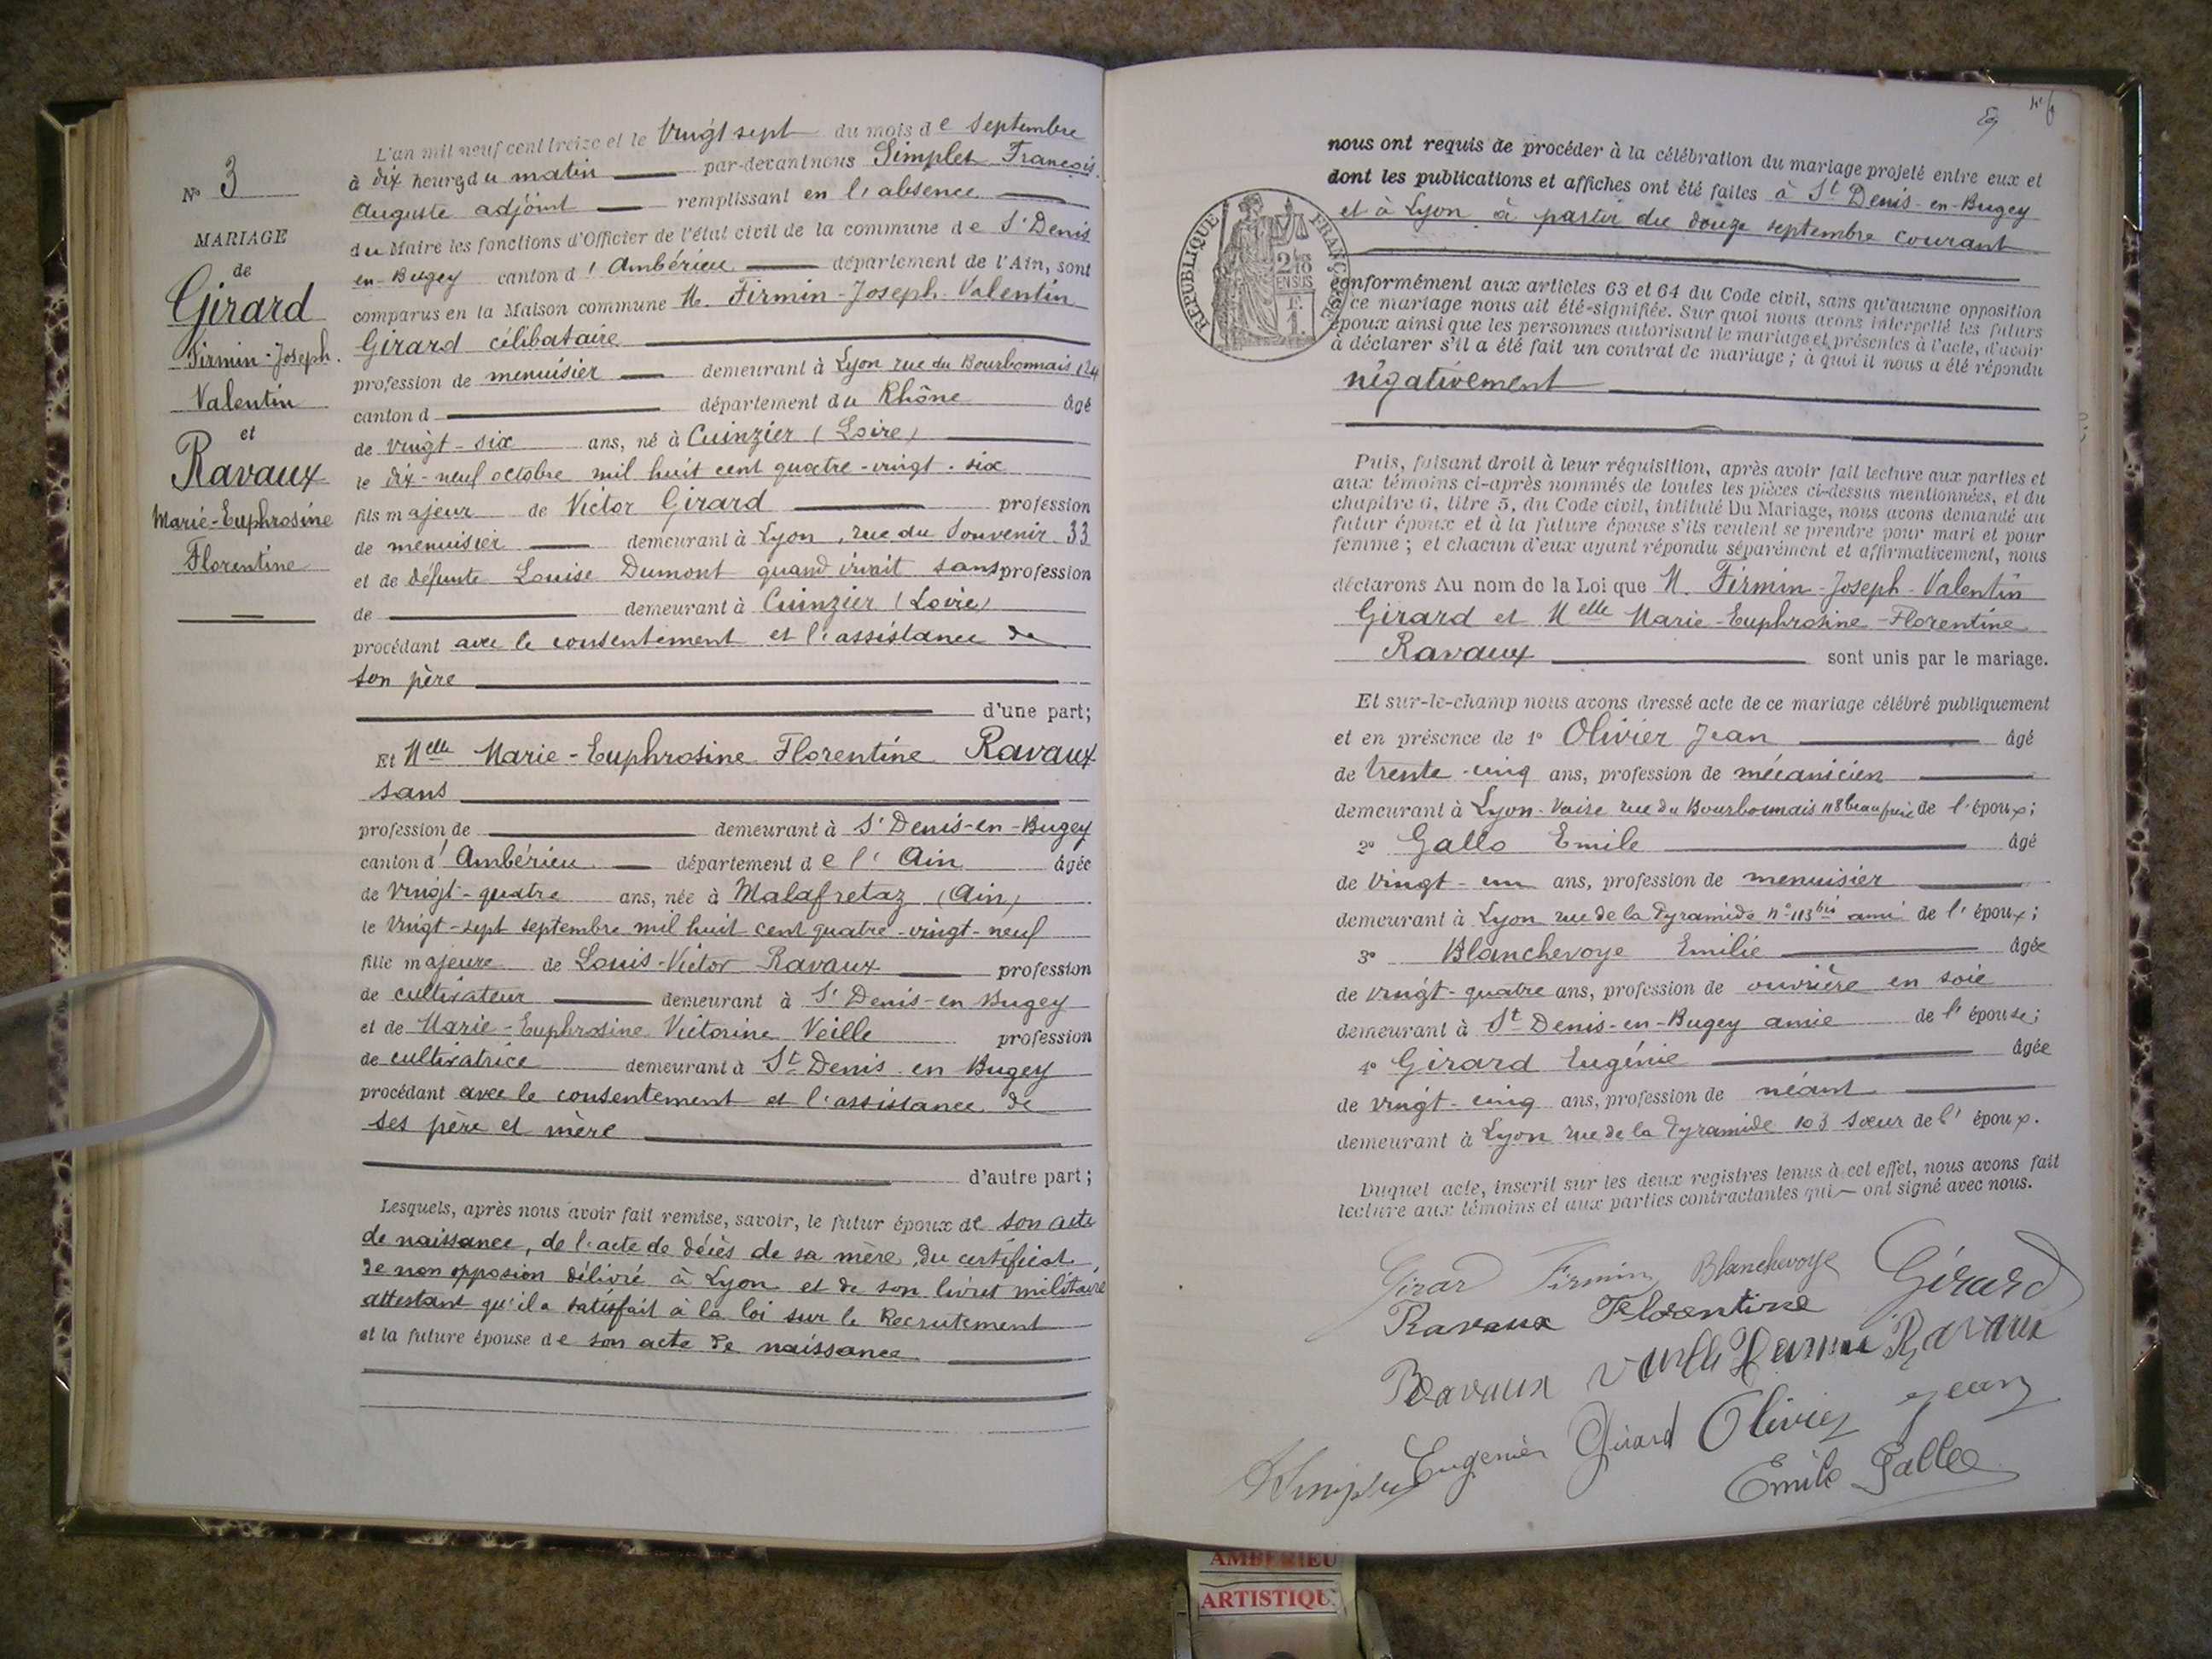 N° 3
MARIAGE
de
Girard
Firmin-Joseph.
Valentin
et
Ravaux
Marie-Euphrosine
Florentine
L'an mil neuf cent treize et le vingt sept du mois de Septembre
à dix heures du matin par-devant nous Simplet François.
Auguste adjoint remplissant en l'absence
du Maire les fonctions d'Officier de l'état civil de la commune de St Denis
en-Bugey canton d'Ambérieu département de l'Ain, sont
comparus en la Maison commune M. Firmin-Joseph-Valentin
Girard célibataire
profession de menuisier demeurant à Lyon rue du Bourbonnais 124
canton d département du Rhône âgé
de vingt-six ans, né à Cuinzier (Loire)
le dix-neuf octobre mil huit cent quatre-vingt-six
fils majeur de Victor Girard profession
de menuisier demeurant à Lyon, rue du Souvenir 33
et de défunte Louise Dumont quand vivait sans profession
de demeurant à Cuinzier (Loire)
procédant avec le consentement et l'assistance de
son père
d'une part;
Et Melle Marie-Euphrosine Florentine Ravaux
sans
profession de demeurant à St Denis-en-Bugey
canton d'Ambérieu département de l'Ain âgée
de vingt-quatre ans, née à Malafretaz (Ain)
le vingt-sept septembre mil huit cent quatre-vingt-neuf
fille majeure de Louis-Victor Ravaux profession
de cultivateur demeurant à St Denis-en Bugey
et de Marie-Euphrosine Victorine Veille profession
de cultivatrice demeurant à St Denis en Bugey
procédant avec le consentement et l'assistance de
ses père et mère
d'autre part;
Lesquels, après nous avoir fait remise, savoir, le futur époux de son acte
de naissance, de l'acte de décès de sa mère, du certificat
de non opposion délivré à Lyon et de son livret militaire
attestant qu'il a satisfait à la loi sur le Recrutement
et la future épouse de son acte de naissance
nous ont requis de procéder à la célébration du mariage projeté entre eux et
dont les publications et affiches ont été faites à St Denis-en-Bugey
et à Lyon à partir du douze septembre courant
RÉPUBLIQUE FRANÇAISE
2/10
EN SUS
1F.
conformément aux articles 63 et 64 du Code civil, sans qu'aucune opposition
à ce mariage nous ait été signifiée. Sur quoi nous avons interpellé les futurs
époux ainsi que les personnes autorisant le mariage et présentes à l'acte, d'avoir
à déclarer s'il a été fait un contrat de mariage; à quoi il nous a été répondu
négativement
Puis, faisant droit à leur réquisition, après avoir fait lecture aux parties et
aux témoins ci-après nommés de toutes les pièces ci-dessus mentionnées, et du
chapitre 6, titre 5, du Code civil, intitulé Du Mariage, nous avons demandé au
futur époux et à la future épouse s'ils veulent se prendre pour mari et pour
femme; et chacun d'eux ayant répondu séparément et affirmativement, nous
déclarons Au nom de la Loi que M. Firmin-Joseph-Valentin
Girard et Melle Marie-Euphrosine-Florentine
Ravaux sont unis par le mariage.
Et sur-le-champ nous avons dressé acte de ce mariage célébré publiquement
et en présence de 1° Olivier Jean âgé
de trente-cinq ans, profession de mécanicien
demeurant à Lyon-Vaise rue du Bourbonnais 118 beau frère de l'époux;
2° Gallo Emile âgé
de vingt-un ans, profession de menuisier
demeurant à Lyon rue de la Pyramide n° 113 bis ami de l'époux;
3° Blanchevoye Emilie âgée
de vingt-quatre ans, profession de ouvrière en soie
demeurant à St Denis-en-Bugey amie de l'épouse;
4° Girard Eugénie âgée
de vingt-cinq ans, profession de néant
demeurant à Lyon rue de la Pyramide 103 sœur de l'époux.
Duquel acte, inscrit sur les deux registres tenus à cet effet, nous avons fait
lecture aux témoins et aux parties contractantes qui ont signé avec nous.
Girard Firmin Blanchevoye Girard
Ravaux Florentine
Ravaux Ravaux
Girard Olivier Jean
Emile Gallo
AMBERIEU
ARTISTIQU